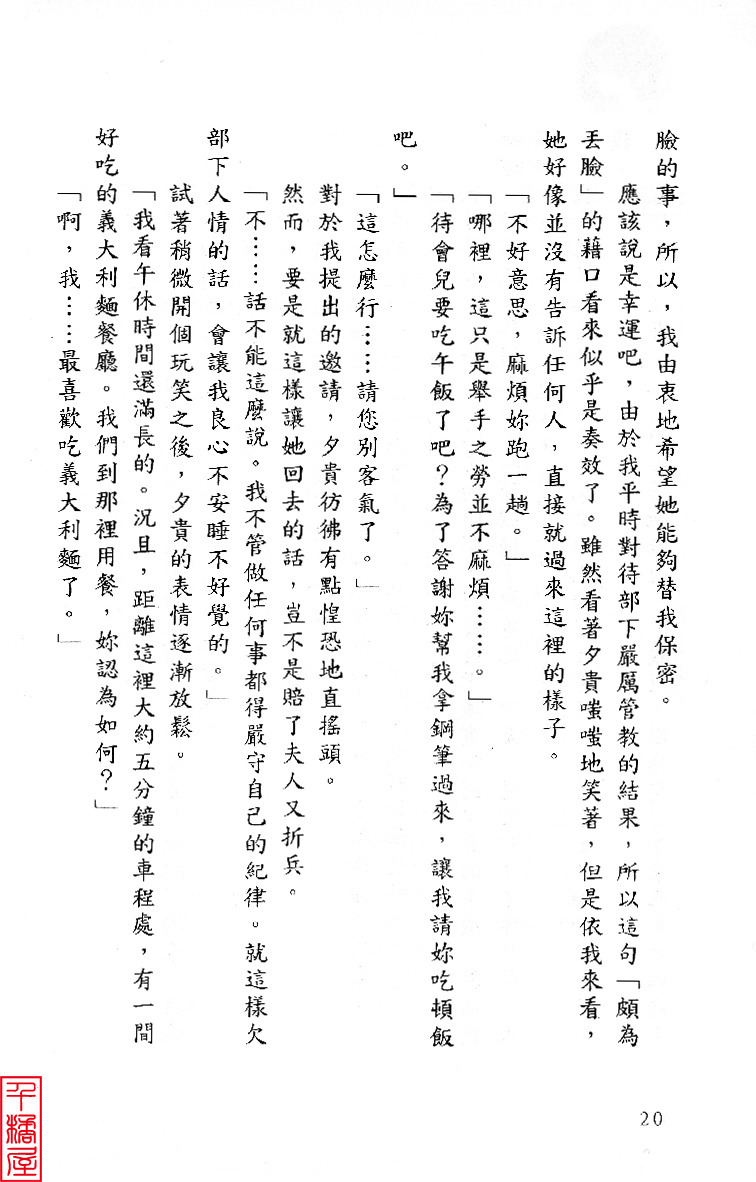 臉的事，所以，我由衷地希望她能夠替我保密。
應該說是幸運吧，由於我平時對待部下嚴厲管教的結果，所以這句「頗為
丟臉」的藉口看來似乎是奏效了。雖然看著夕貴嗤嗤地笑著，但是依我來看，
她好像並沒有告訴任何人，直接就過來這裡的樣子。
「不好意思，麻煩妳跑一趟。」
「哪裡，這只是舉手之勞並不麻煩……。」
「待會兒要吃午飯了吧？為了答謝妳幫我拿鋼筆過來，讓我請妳吃頓飯
吧。」
「這怎麼行……請您別客氣了。」
對於我提出的邀請，夕貴彷彿有點惶恐地直搖頭。
然而，要是就這樣讓她回去的話，豈不是賠了夫人又折兵。
「不……話不能這麼說。我不管做任何事都得嚴守自己的紀律。就這樣欠
部下人情的話，會讓我良心不安睡不好覺的。」
試著稍微開個玩笑之後，夕貴的表情逐漸放鬆。
「我看午休時間還滿長的。況且，距離這裡大約五分鐘的車程處，有一間
好吃的義大利麵餐廳。我們到那裡用餐，妳認為如何？」
「啊，我……最喜歡吃義大利麵了。」
20
千橘屋